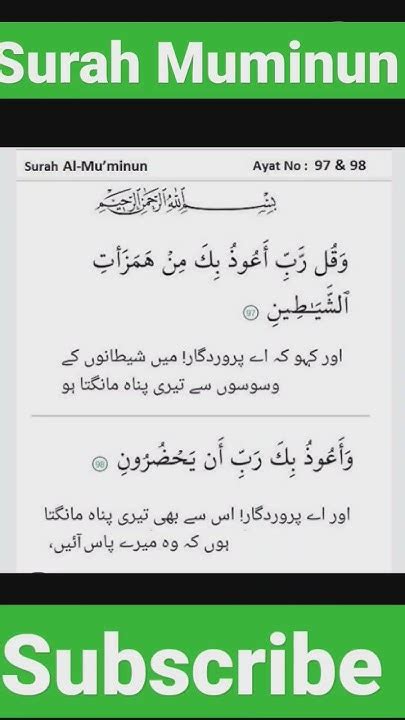 Surah Muminun
Surah Al-Mu’minun Ayat No : 97 & 98
بِسْمِ اللهِ الرَّحْمٰنِ الرَّحِيْمِ
وَقُل رَّبِّ أَعُوذُ بِكَ مِنْ هَمَزَٰتِ
ٱلشَّيَـٰطِينِ 97
اور کہو کہ اے پروردگار! میں شیطانوں کے
وسوسوں سے تیری پناہ مانگتا ہو
وَأَعُوذُ بِكَ رَبِّ أَن يَحْضُرُونِ 98
اور اے پروردگار! اس سے بھی تیری پناہ مانگتا
ہوں کہ وہ میرے پاس آئیں،
Subscribe